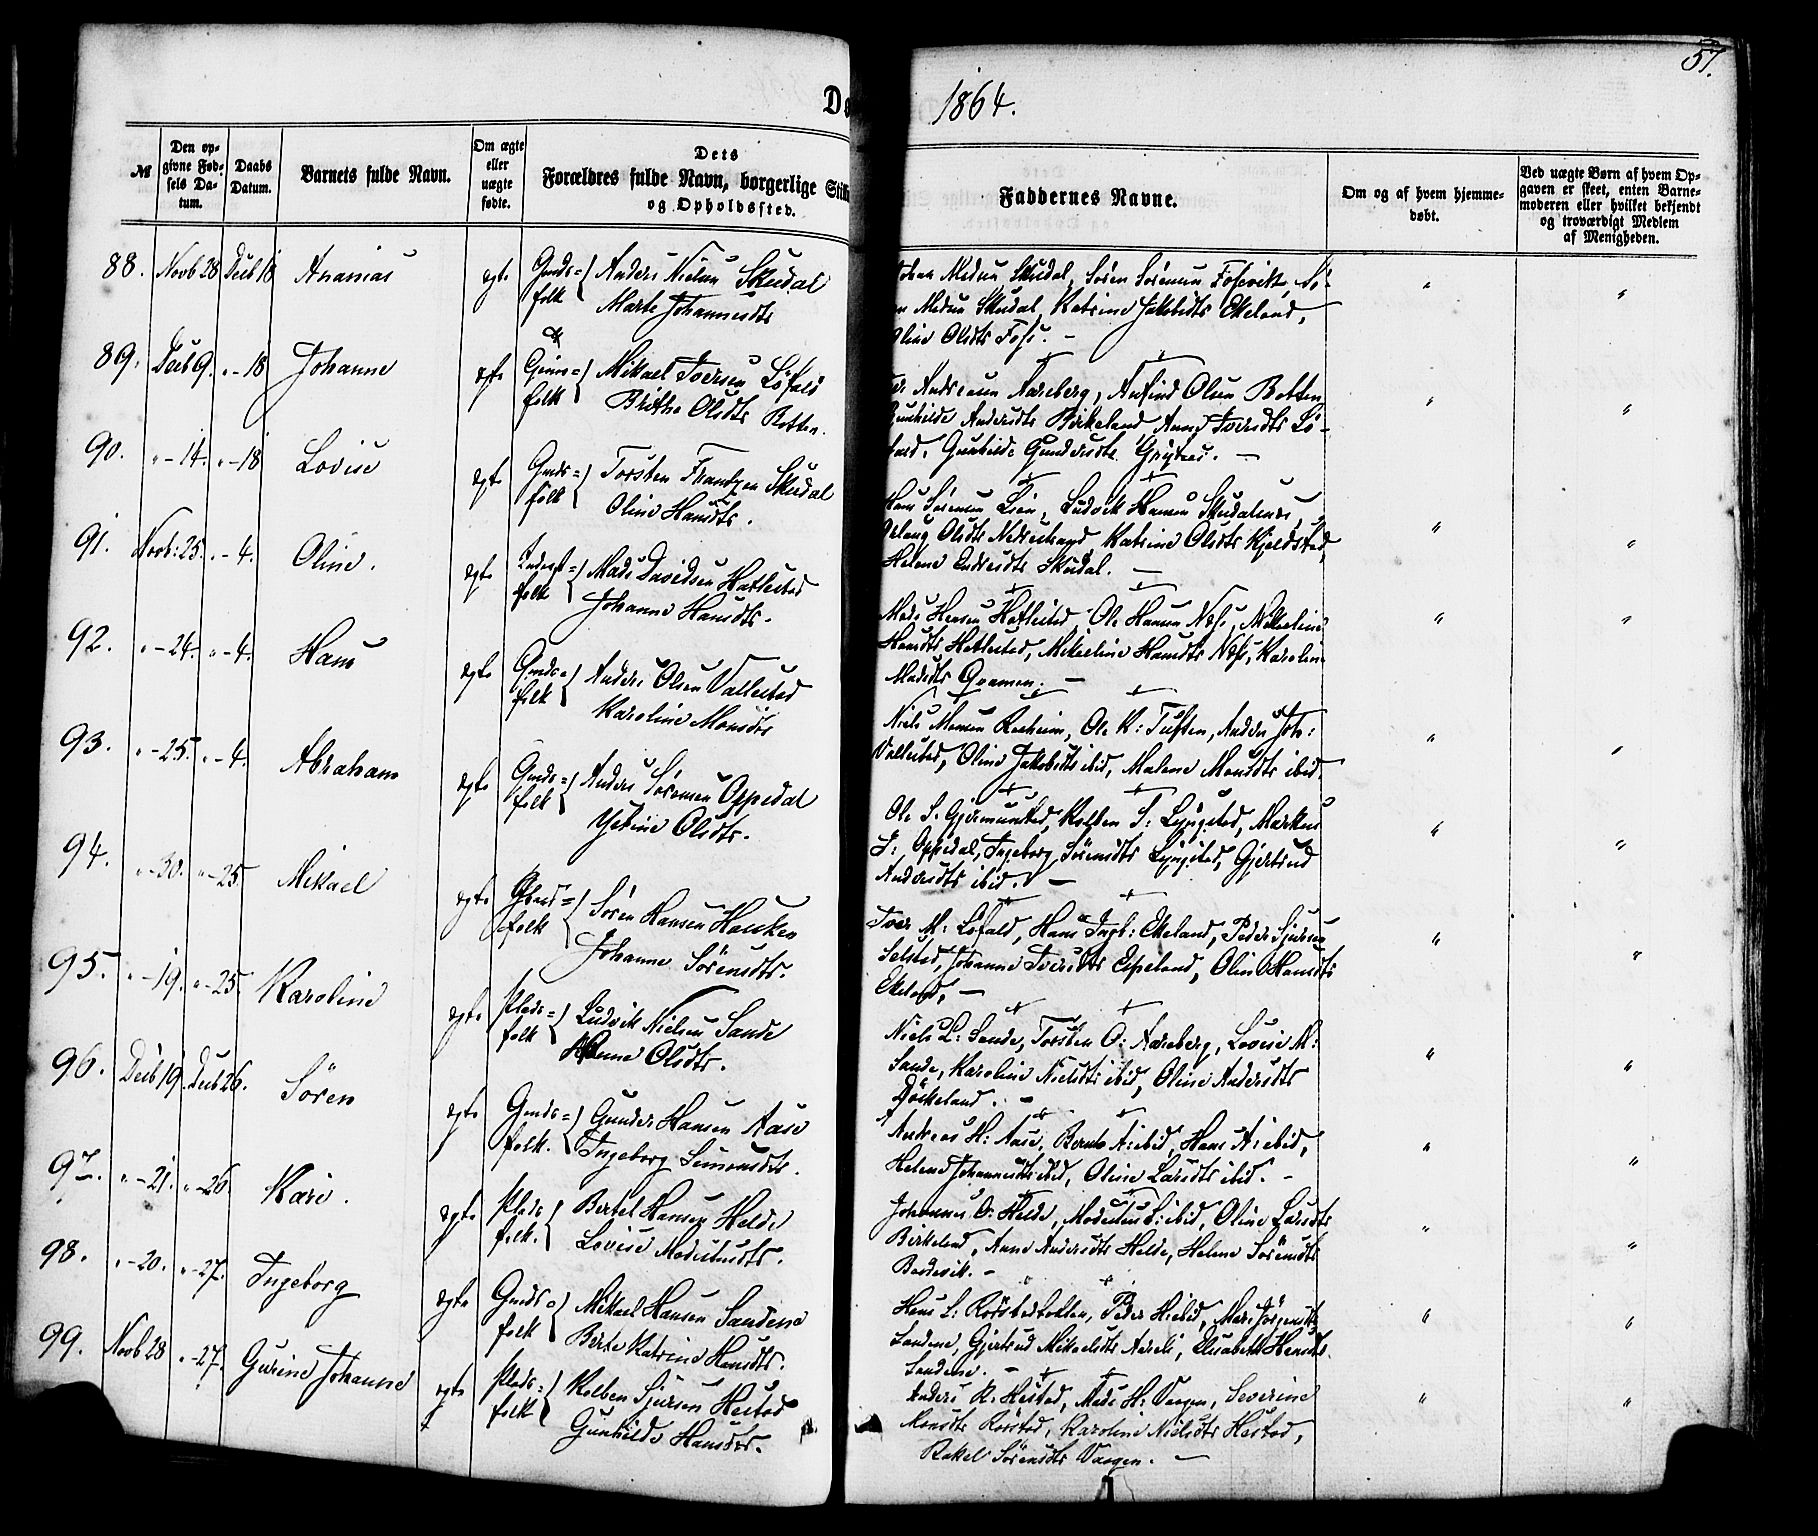 57.
Dø
1864.
№
Den op-
givne Fød-
sels Da-
tum.
Daabs
Datum.
Barnets fulde Navn.
Om ægte
eller
uægte
fødte.
Dets
Forældres fulde Navn, borgerlige Still
og Opholdssted.
Faddernes Navne.
Om og af hvem hjemme-
døbt.
Ved uægte Børn af hvem Op-
gaven er skeet, enten Barne-
moderen eller hvilket bekjendt
og troværdigt Medlem
af Menigheden.
88. Novb 28 Decb 18 Ananias ægte Gmds= folk Anders Nielsen Skudal
Marte Johannesdtr
Madsen Skudal, Sören Sörensen Fossevik,
Madsen Skudal, Katrine Jakobsdtr Ekeland,
Oline Olsdtr Foss. -
89. Decb 9. " - 18 Johanne ægte folk Mikael Iversen Löfald
Brithe Olsdtr Botten.
Andreasen Aareberg, Anfind Olsen Botten
Gunhilde Andersdtr Birkeland Anne Iversdtr Lö-
fald, Gunhilde Gundersdtr. -
90. " - 14. " - 18 Lovise ægte Gmds= folk Torsten Frantzen Skudal
Oline Hansdtr.
Hans Sörensen Lien, Ludvik Hansen
Olsdtr Nedrestrand Katrine Olsdtr Kjeldstad,
Helene Endresdtr Skudal. -
91. Novb: 25. " - 4. Oline. ægte folk Mads Davidsen Hatlestad
Johanne Hansdtr.
Mads Hansen Hatlestad, Ole Hansen Næss,
Hansdtr Hatlestad, Mikaeline Hansdtr Næss, Karolin
Madsdtr Qvamen. -
92. " - 24. " - 4. Hans ægte Gmds= folk Anders Olsen Vallestad
Karoline Monsdtr
Niels Monsen, Ole K: Tuften, Anders Joh:
Vallestad, Oline Jakobsdtr ibid, Malene Monsdtr ibid.
93. " - 25. " - 4. Abraham ægte Gmds= folk Anders Sörensen Oppedal
Olsdtr.
Ole S. Gjermunstad, Kolben S: Ljungstad, Markus
Oppedal, Ingeborg Sörensdtr Ljungstad, Gjertrud
Andersdtr ibid. -
94. " - 30. " - 25. Mikael ægte folk Sören Hansen Hauken
Johanne Sörensdtr.
Iver M: Löfald, Hans Ingb: Ekeland, Peder Sjursen
Selstad, Johanne Iversdtr Espeland, Oline Hansdtr
Ekeland, -
95. " - 19. " - 25. Karoline ægte Plads= folk Ludvik Nielsen Sande
Anne Olsdtr.
Niels L: Sande, Torsten O: Aareberg, Lovise M:
Sande, Karoline Nielsdtr ibid, Oline Andersdtr
Döskeland. -
96. Decb 19. Decb 26. Sören ægte Gmds= folk. Gunder Hansen Aase
Ingeborg Simonsdtr.
Andreas H: Aase, Bernt A: ibid, Hans A: ibid,
Helene Johannesdtr ibid, Oline Larsdtr ibid. -
97. " - 21. " - 26. Kari. ægte Plads folk. Bertel Hansen Helde
Lovise Modestusdtr.
Johannes O: Helde, Modestus B: ibid, Oline Larsdtr
Birkeland, Anne Andersdtr Helde, Helene Sörensdtr
Bordevik. -
98. " - 20. " - 27. Ingeborg ægte Gmds= folk Mikael Hansen Sandene
Berte Katrine Hansdtr.
Hans L: Rörstadbotten, Peder H: ibid, Mari Jörgensdtr
Sandene, Gjertrud Mikaelsdtr, Elisabeth Hansdtr
Sandene. -
99. Novb 28 " - 27. Gurine Johanne ægte Plads= folk Kolben Sjursen Hestad
Gunhilde Hansdtr.
Anders K: Hestad, Mads H: Vaagen, Severine
Monsdtr Rörstad, Karoline Nielsdtr Hestad,
Rakel Sörensdtr Vaagen. -